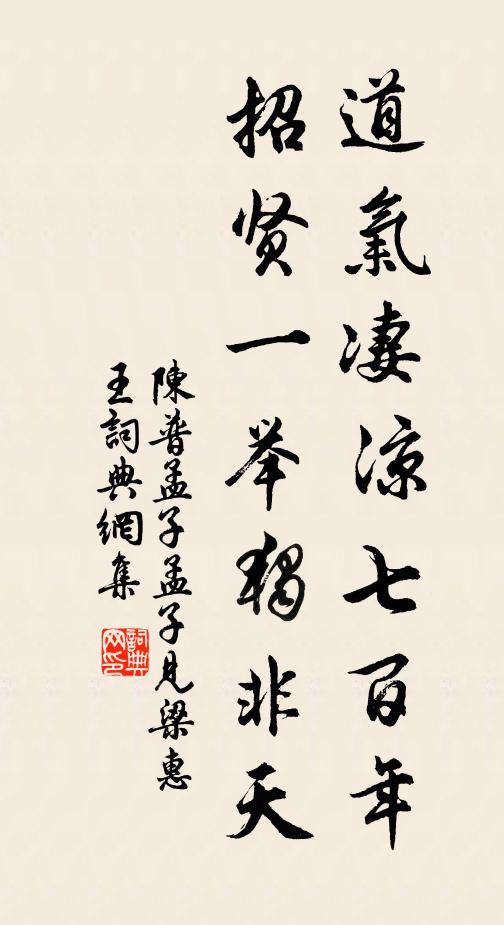 道氣凄凉七百年
招贤一举独非天
陳普孟子孟子見梁惠
王詞典網集
詞典網印